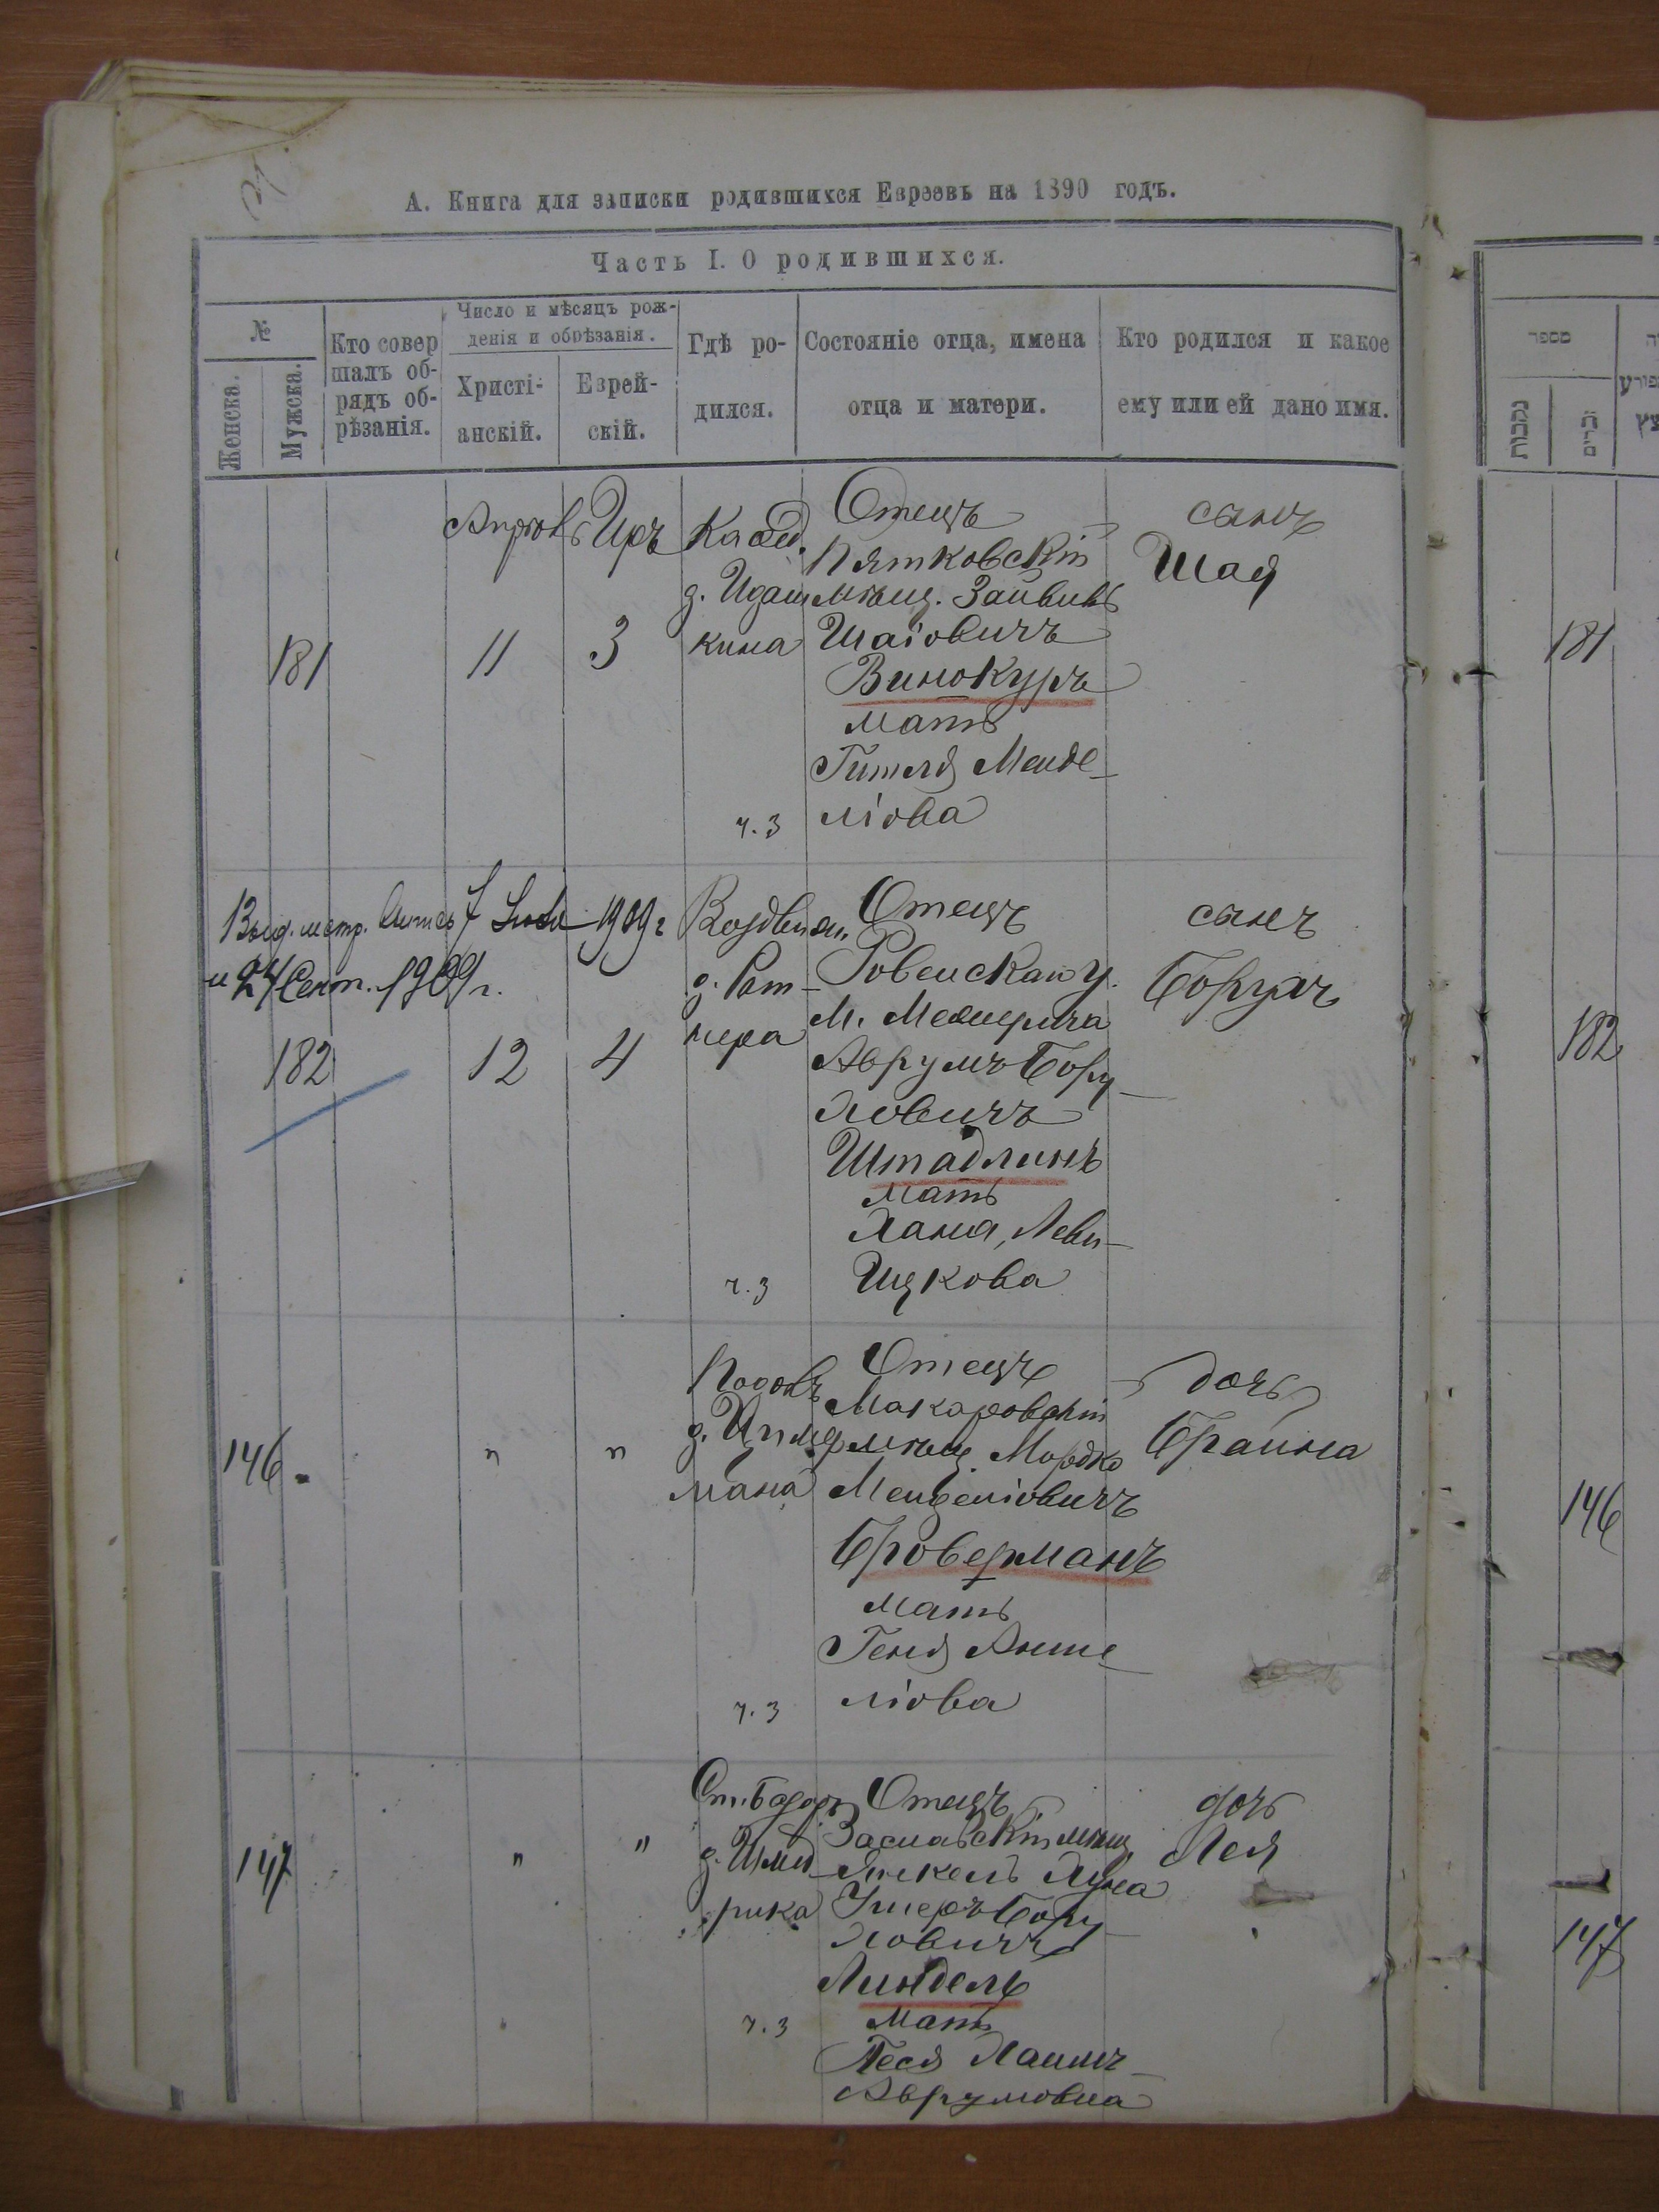 А. Книга для записки родившихся Евреевъ на 1890 годъ.
Часть I. О родившихся.
№
Женска.
Мужска.
Кто совер
шалъ об-
рядъ об-
рѣзанія.
Число и мѣсяцъ рож-
денія и обрѣзанія.
Христі-
анскій.
Еврей-
скій.
Гдѣ ро-
дился.
Состояніе отца, имена
отца и матери.
Кто родился и какое
ему или ей дано имя.
מספר
נקבות
זכרים
181
Апрель
11
Иръ
3
д. Идаш
кина
ч. 3
Отецъ
Пятковскій
мѣщ. Зайвилъ
Шаіовичъ
Винокуръ
мать
Гитля Менде-
ліова
сынъ
Шая
181
Выд. метр.
7
1909 г
и 24 Сент. 1909 г.
182
12
4
д. Рот-
нера
ч. 3
Отецъ
Ровенскаи у.
М. Межирича
Аврумъ Бору-
ховичъ
Штадлинъ
мать
Хана, Леви-
Ицкова
сынъ
Борухъ
182
146
"
"
д. Цимер
мана
ч. 3
Отецъ
Макаровскій
мѣщ. Мордко
Менделіовичъ
Броверманъ
мать
Геня Анше-
ліова
дочь
Брайна
146
147
"
"
д. Шмид-
рика
ч. 3
Отецъ
Заславскій мѣщ
Янкель Дувид
Ушеръ Бору-
ховичъ
Линдель
мать
Песя Хаимъ-
Аврумовна
дочь
Лея
147